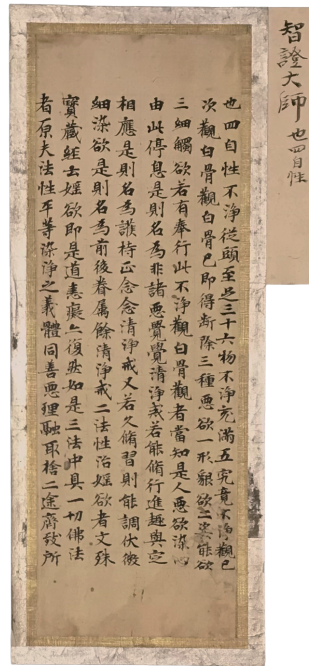 智證大師
也四自性
也四自性不淨從頭至足三十六物不淨充滿五究竟不淨觀已
次觀白骨觀白骨已即得斷除三種惡欲一形貌欲二姿態欲
三細觸欲若有奉行此不淨觀白骨觀者當知是人惡欲漸
由此停息是則名為非諸惡覺覺清淨戒若能脩行進趣與定
相應是則名為護持正念念清淨戒又若久脩習則能調伏微
細染欲是則名為前後眷屬餘清淨戒二法性治婬欲者文殊
寳蔵経云婬欲即是道恚癡亦復然如是三法中具一切佛法
者原夫法性平等染淨之義體同善惡理融取捨二途齊致所